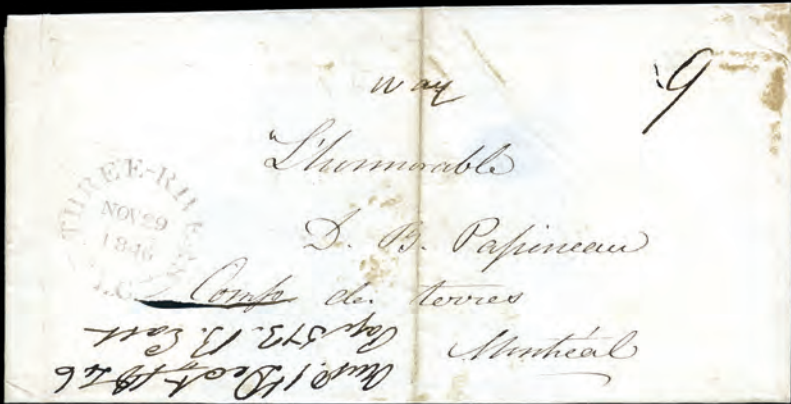 way
9
"L'honnorable
D. B. Papineau
Comp de terres
Montréal
THREE-RIVERS
NOV 29
1846
L.C.
1 Dec 1846
Page 573. B. East